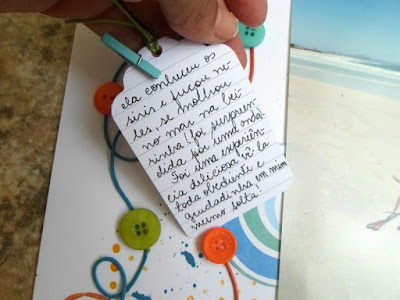 ela conheceu os
siris e fuçou ne-
les, se molhou
no mar na bei-
rinha (foi surpreen-
dida por uma onda!
Foi uma experiên-
cia deliciosa vê-la
toda obediente e
grudadinha em mim
mesmo solta!